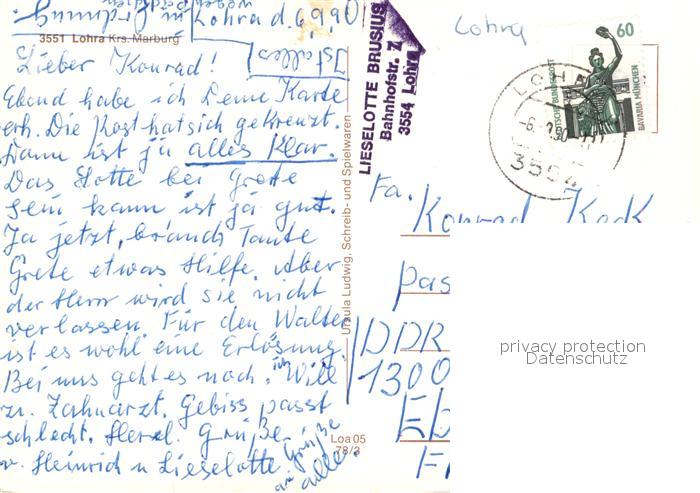 Ordnung
in Lohra d. 6.9.90
3551 Lohra Krs. Marburg
Ist alles
Lieber Konrad!
Ebend habe ich Deine Karte
erh. Die Post hat sich gekreuzt.
Dann ist ja alles Klar.
Das Lotte bei Grete
sein kann ist ja gut.
Ja jetzt, brauch Tante
Grete etwas Hilfe. Aber
der Herr wird sie nicht
verlassen. Für den Walter
ist es wohl eine Erlösung.
Bei uns geht es noch. ich Will
zu. Zahnarzt. Gebiss passt
schlecht. Herzl. Grüße
v. Heinrich u Lieselotte.
Grüße
an alle.
Ursula Ludwig, Schreib- und Spielwaren
Loa 05
78/3
LIESELOTTE BRUSIUS
Bahnhofstr. 7
3554 Lohra
Lohra
60
DEUTSCHE BUNDESPOST
BAVARIA MÜNCHEN
LOHRA
3554
Fa.
Konrad Keck
Pas
DDR
1300
Eb
privacy protection
Datenschutz